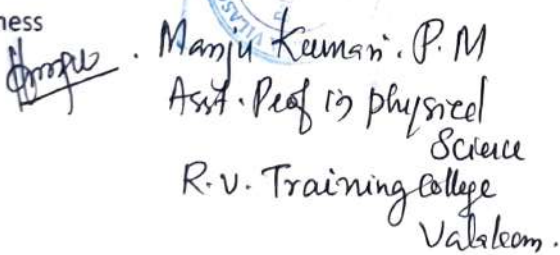 ness
VILAS
Manju Kumari. P.M
Asst. Prof in physical
Science
R.V. Training College
Valakom.